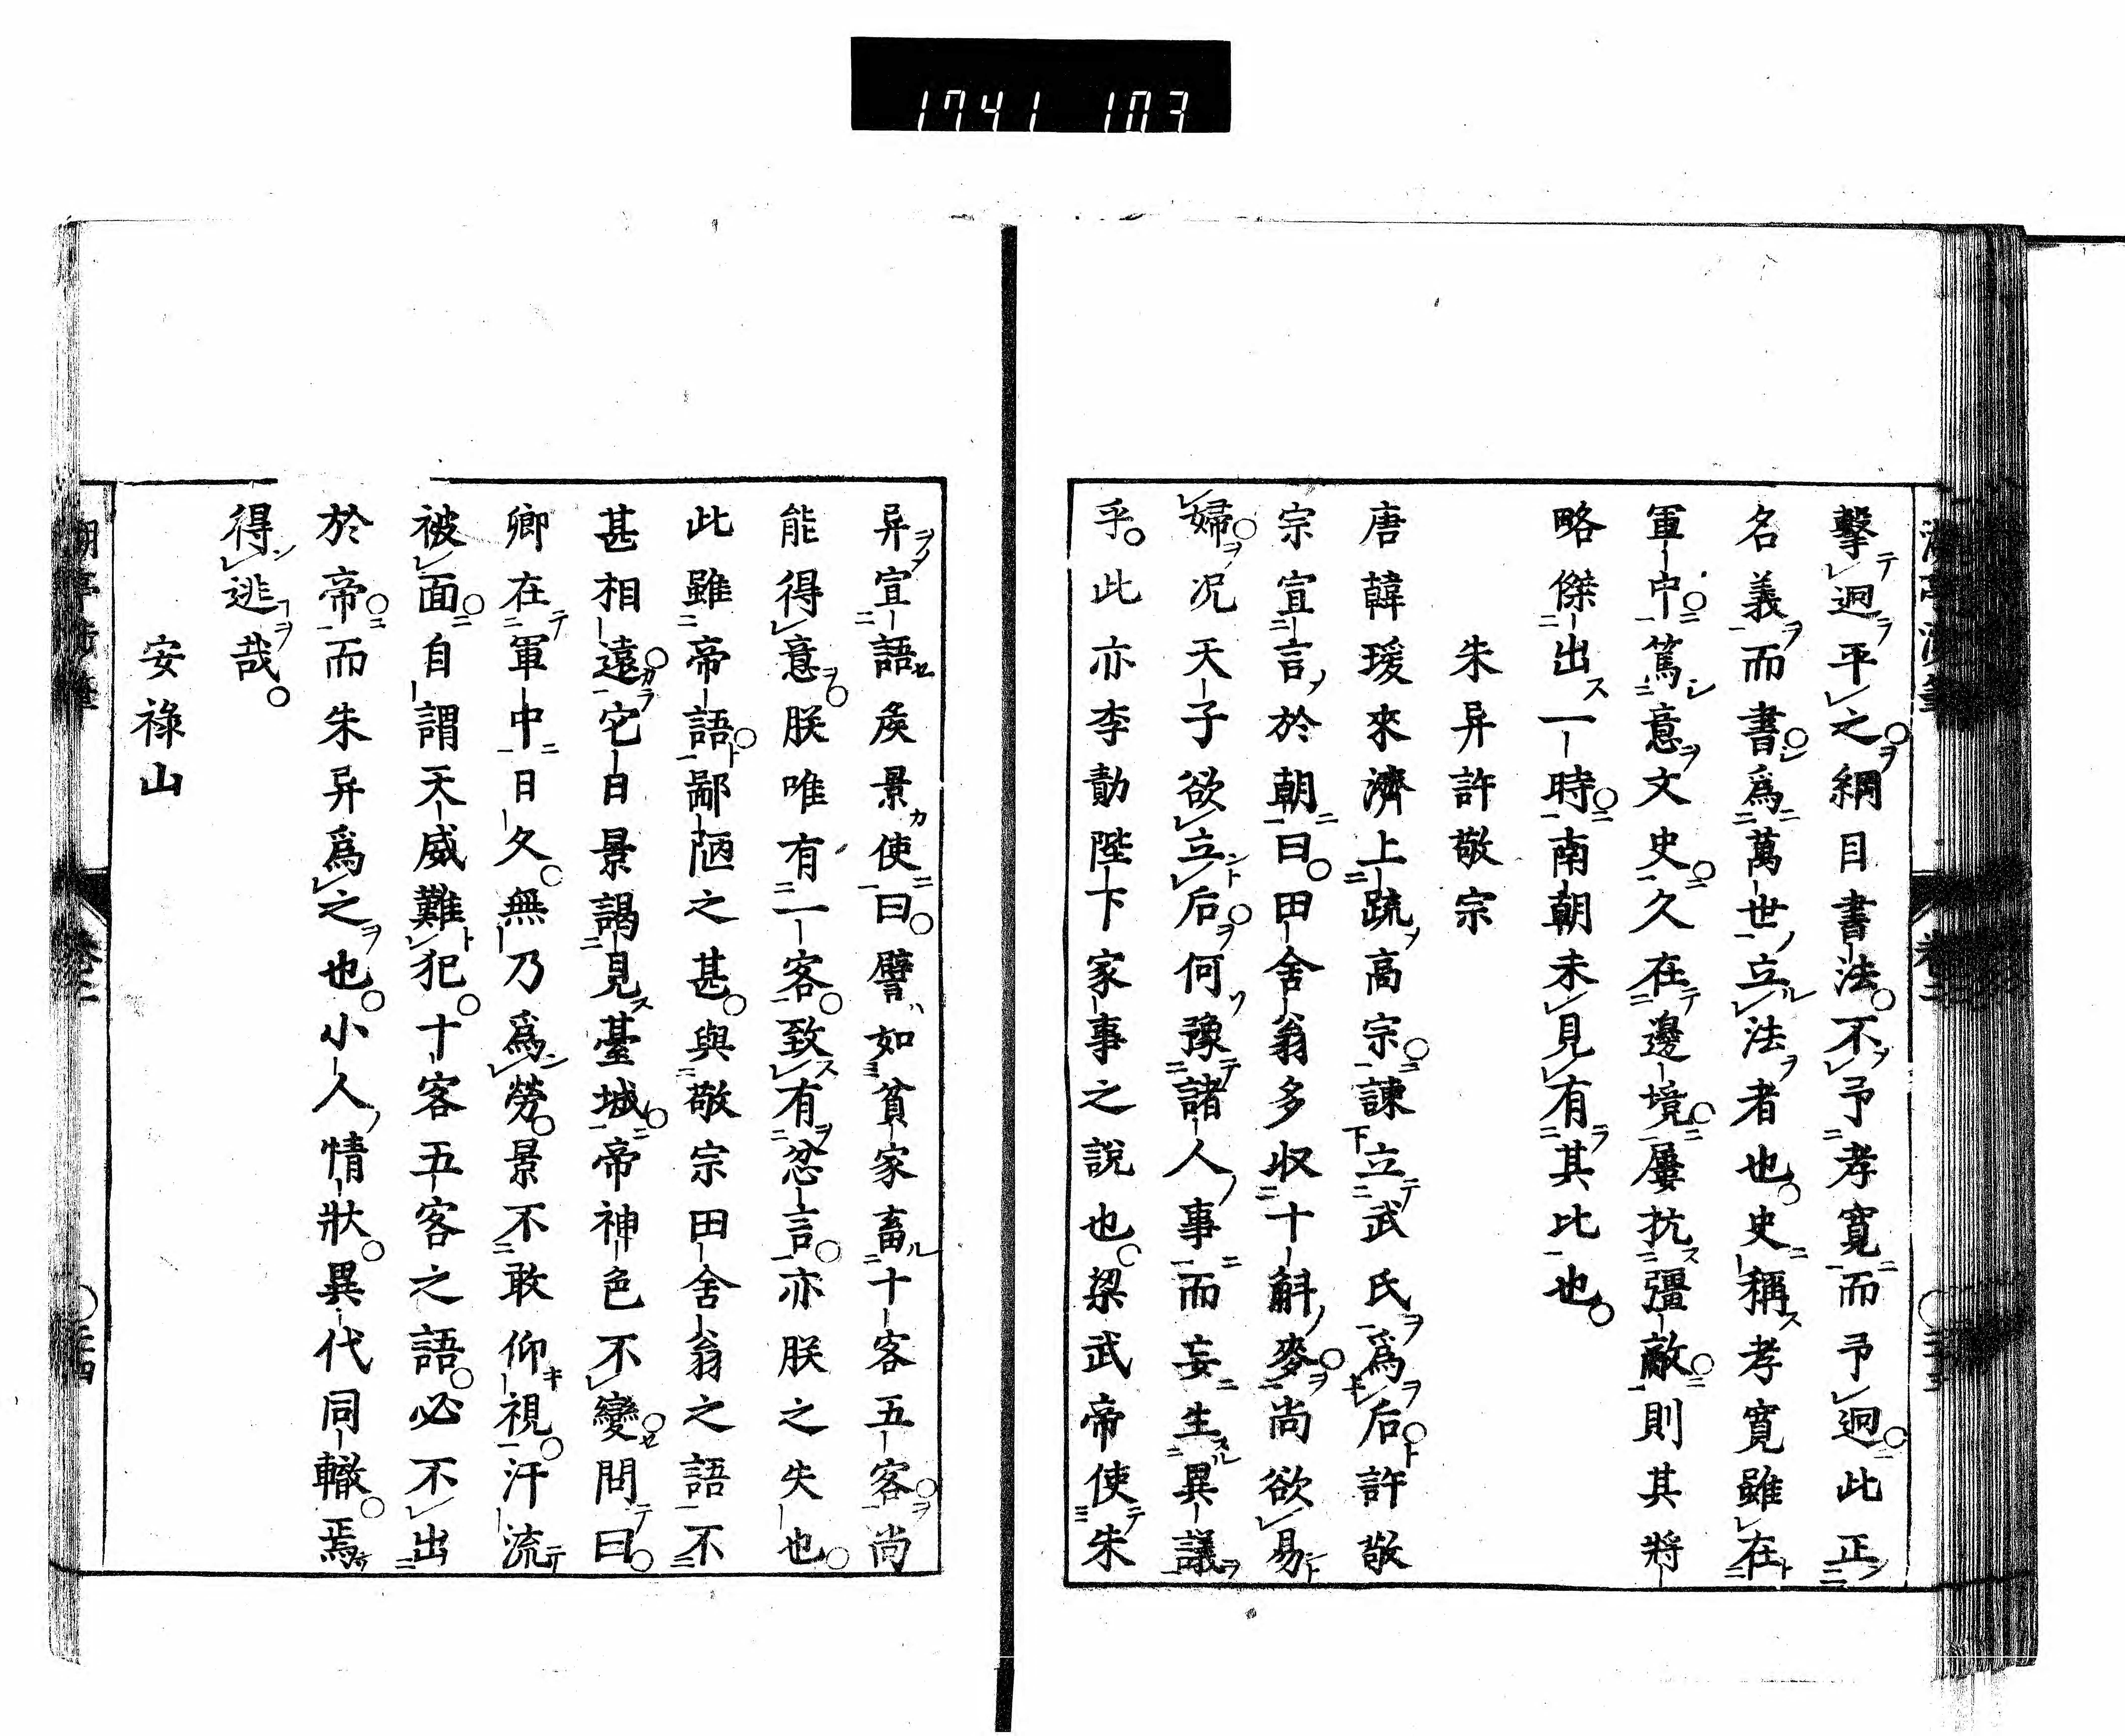 1741 103
擊迥平之綱目書法不予孝寬而予迥此正
名義而書爲萬世立法者也史稱孝寬雖在
軍中篤意文史久在邊境屢抗彊敵則其將
略傑出一時南朝未見有其比也
朱异許敬宗
唐韓瑗來濟上疏高宗諫立武氏爲后許敬
宗宣言於朝曰田舍翁多収十斛麥尚欲易
婦况天子欲立后何豫諸人事而妄生異議
乎此亦李勣陛下家事之說也梁武帝使朱
异宣語矦景使曰譬如貧家畜十客五客尚
能得意朕唯有一客致有忿言亦朕之失也
此雖帝語鄙陋之甚與敬宗田舍翁之語不
甚相遠它日景謁見臺城帝神色不變問曰
卿在軍中日久無乃爲勞景不敢仰視汗流
被面自謂天威難犯十客五客之語必不出
於帝而朱异爲之也小人情狀異代同轍焉
得逃哉
安祿山